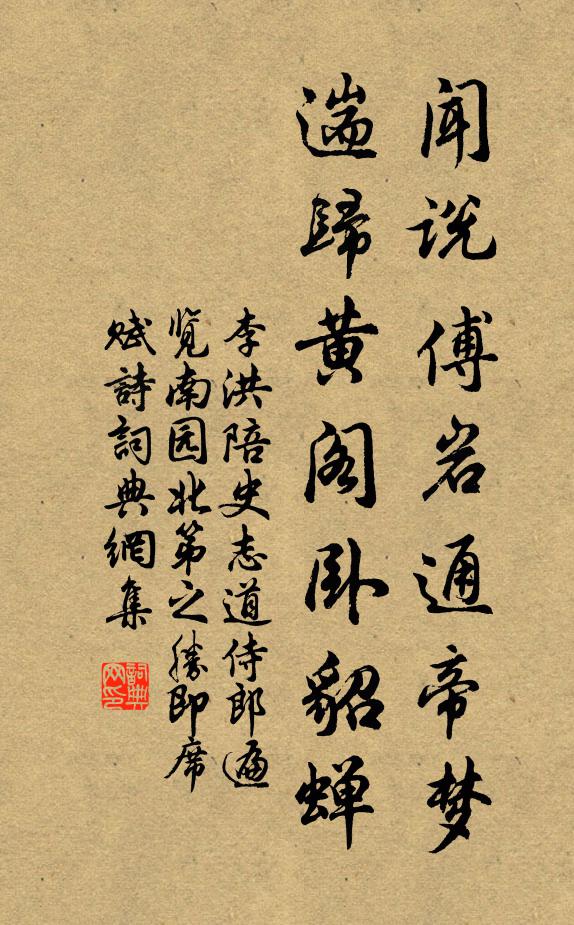 闻说傅岩通帝梦
遄歸黄阁卧貂蝉
李洪陪史志道侍郎遍
览南园北第之胜即席
赋詩詞典網集
詞典网印